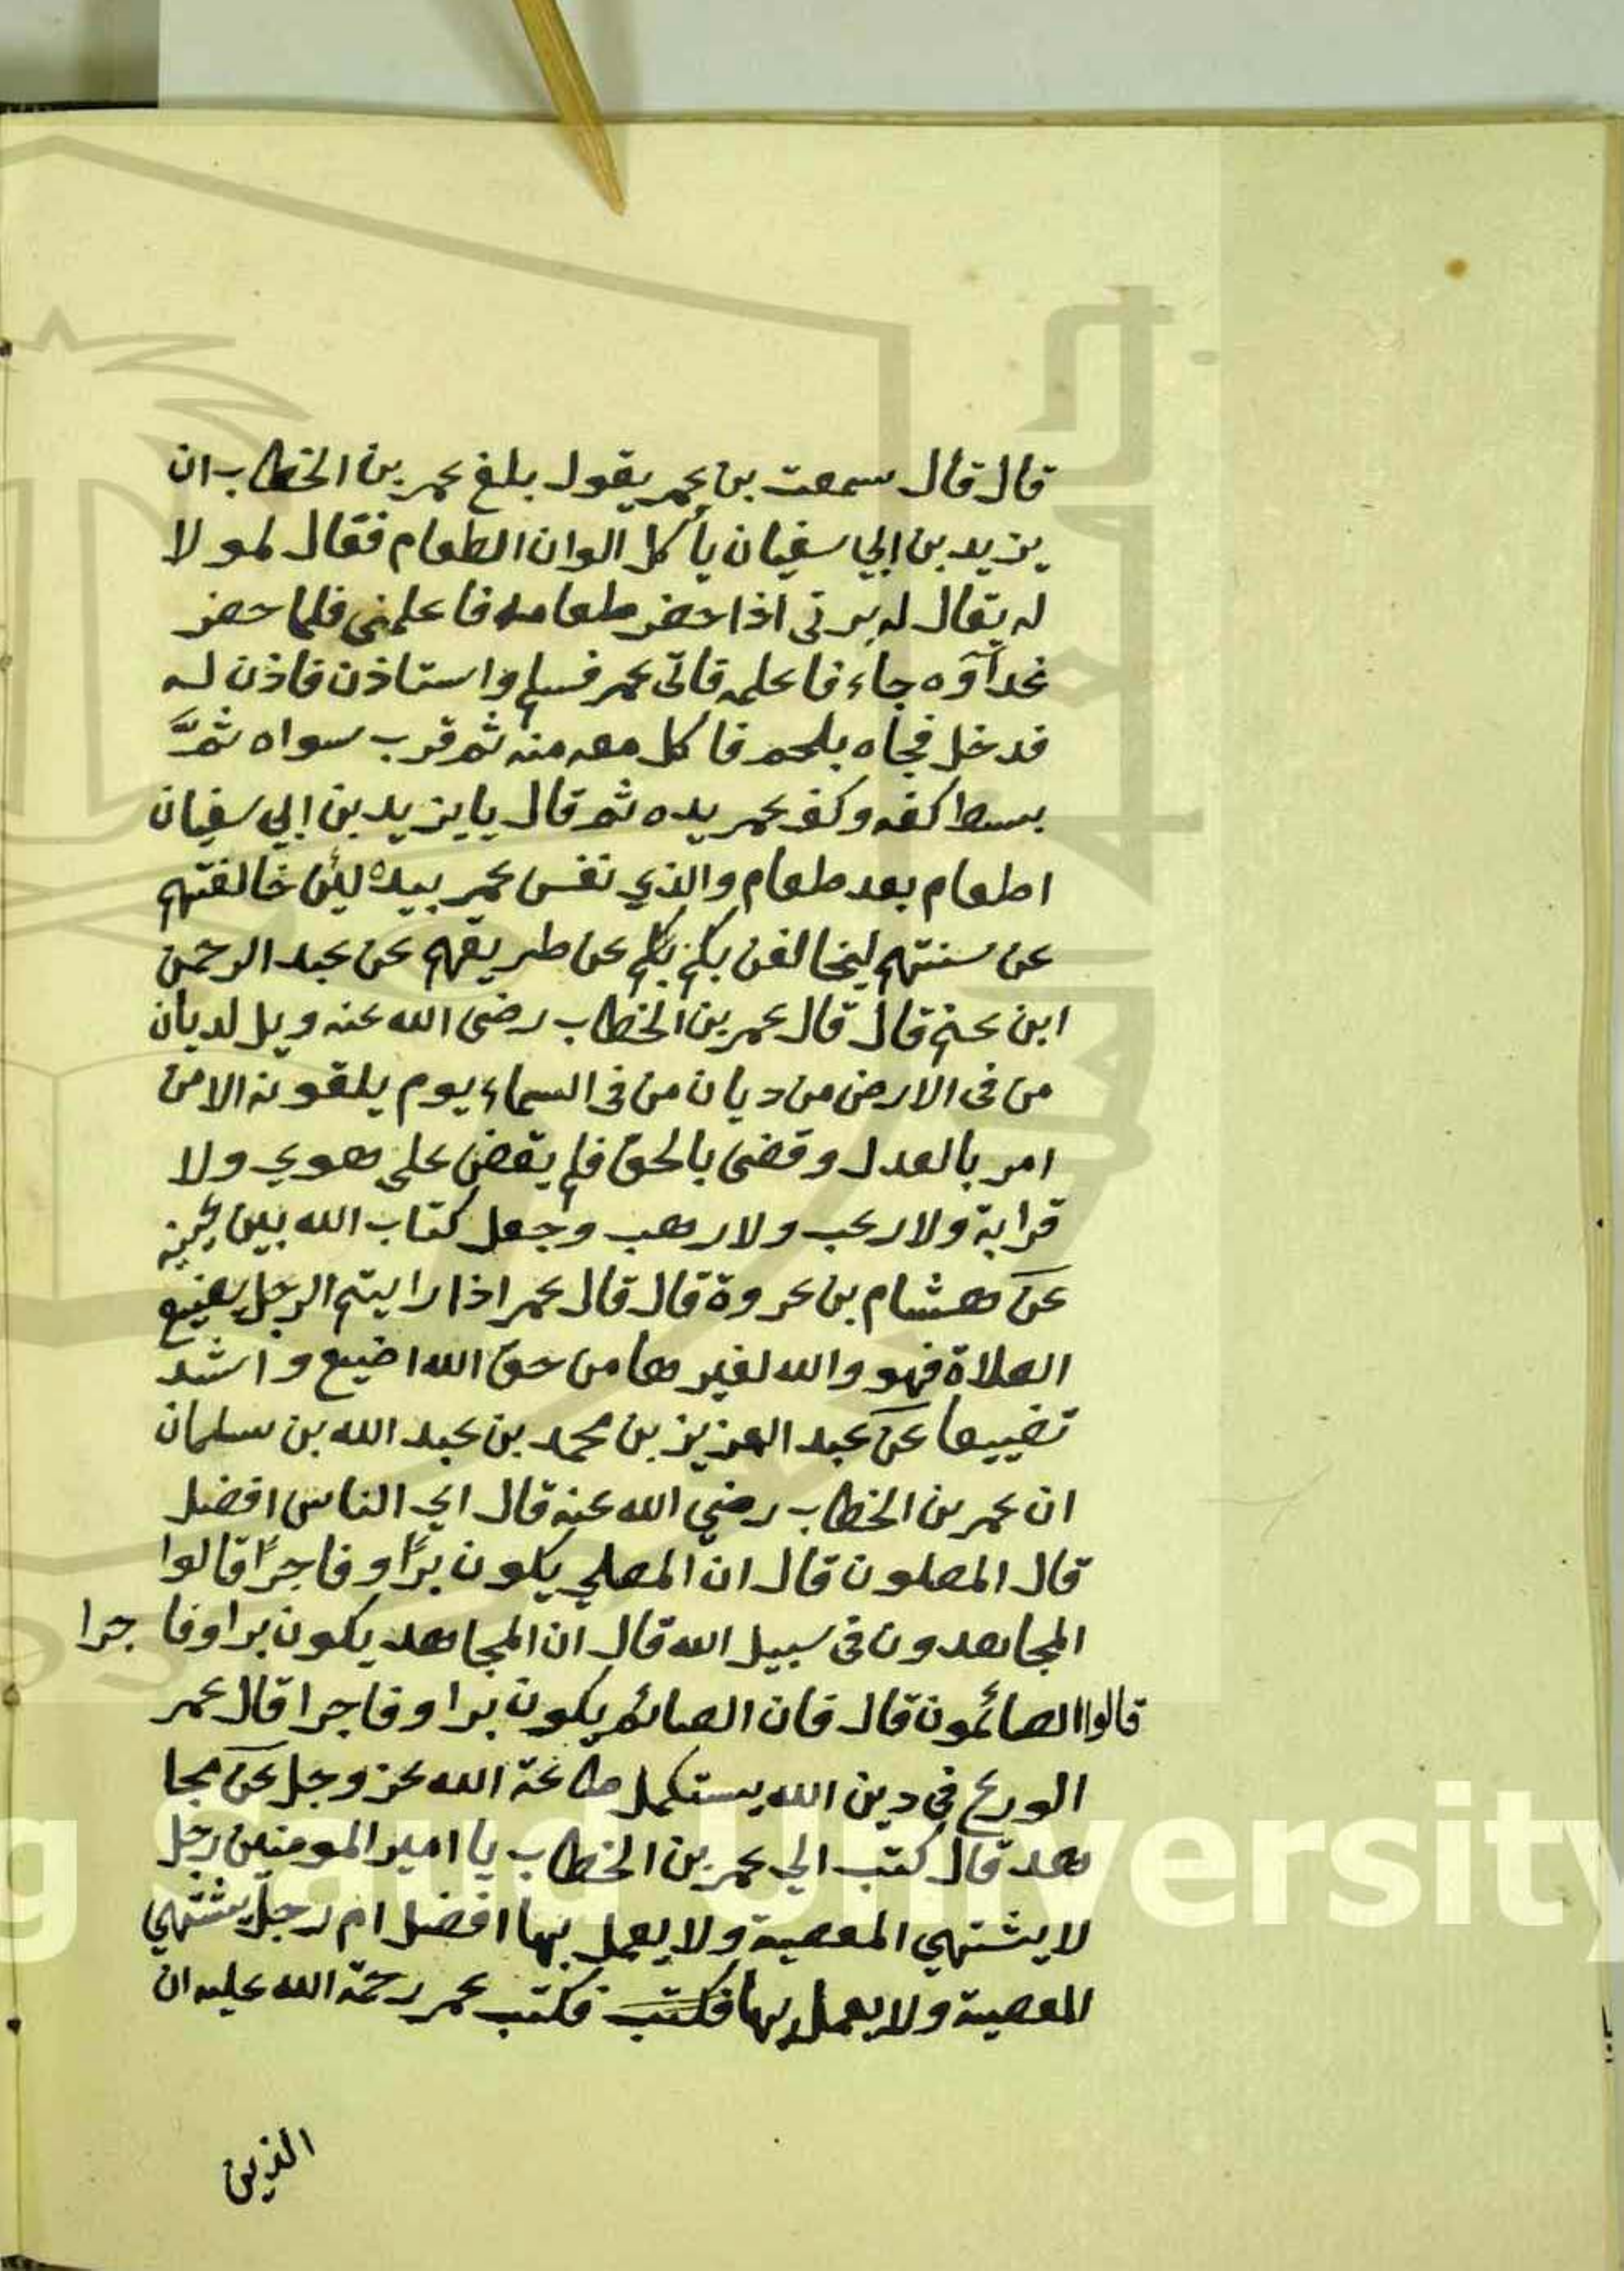 قال قال سمعت بن عمر يقول بلغ عمر بن الخطاب ان
يزيد بن ابي سفيان يأكل الوان الطعام فقال لمولا
له يقال له يرتى اذا حضر طعامه فاعلمني فلما حضر
غدآؤه جاء فاعلمه فاتى عمر فسلم واستاذن فاذن له
فدخل فجاه بلحم فاكل معه منه ثم قرب سواه ثمَّ
بسط كفه وكف عمر يده ثم قال يا يزيد بن ابي سفيان
اطعام بعد طعام والذي نفس عمر بيده لئن خالفتهم
عن سنتهم ليخالفن بكم بكم عن طريقهم عن عبد الرحمن
ابن عنم قال قال عمر بن الخطاب رضى الله عنه ويل لديان
من فى الارض من ديان من فى السماء يوم يلقونه الا من
امر بالعدل وقضى بالحق فلم يقض على هوي ولا
قرابة ولا رعب ولا رهب وجعل كتاب الله بين
عن هشام بن عروة قال قال عمر اذا رايتم الرجل يضيع
الصلاة فهو والله لغيرها من حق الله اضيع واشد
تضييعا عن عبد العزيز بن محمد بن عبد الله بن سلمان
ان عمر بن الخطاب رضي الله عنه قال اي الناس افضل
قال المصلون قال ان المصلي يكون برًا وفاجرًا قالوا
المجاهدون فى سبيل الله قال ان المجاهد يكون برا وفاجرا
قالوا الصائمون قال فان الصائم يكون برا وفاجرا قال عمر
الورع في دين الله يستكمل طاعة الله عز وجل عن مجا
هد قال كتب الي عمر بن الخطاب يا امير المومنين رجل
لا يشتهي المعصية ولا يعمل بها افضل ام رجل يشتهي
المعصية ولا يعمل بها فكتب فكتب عمر رحمة الله عليه ان
الذين
King Saud University